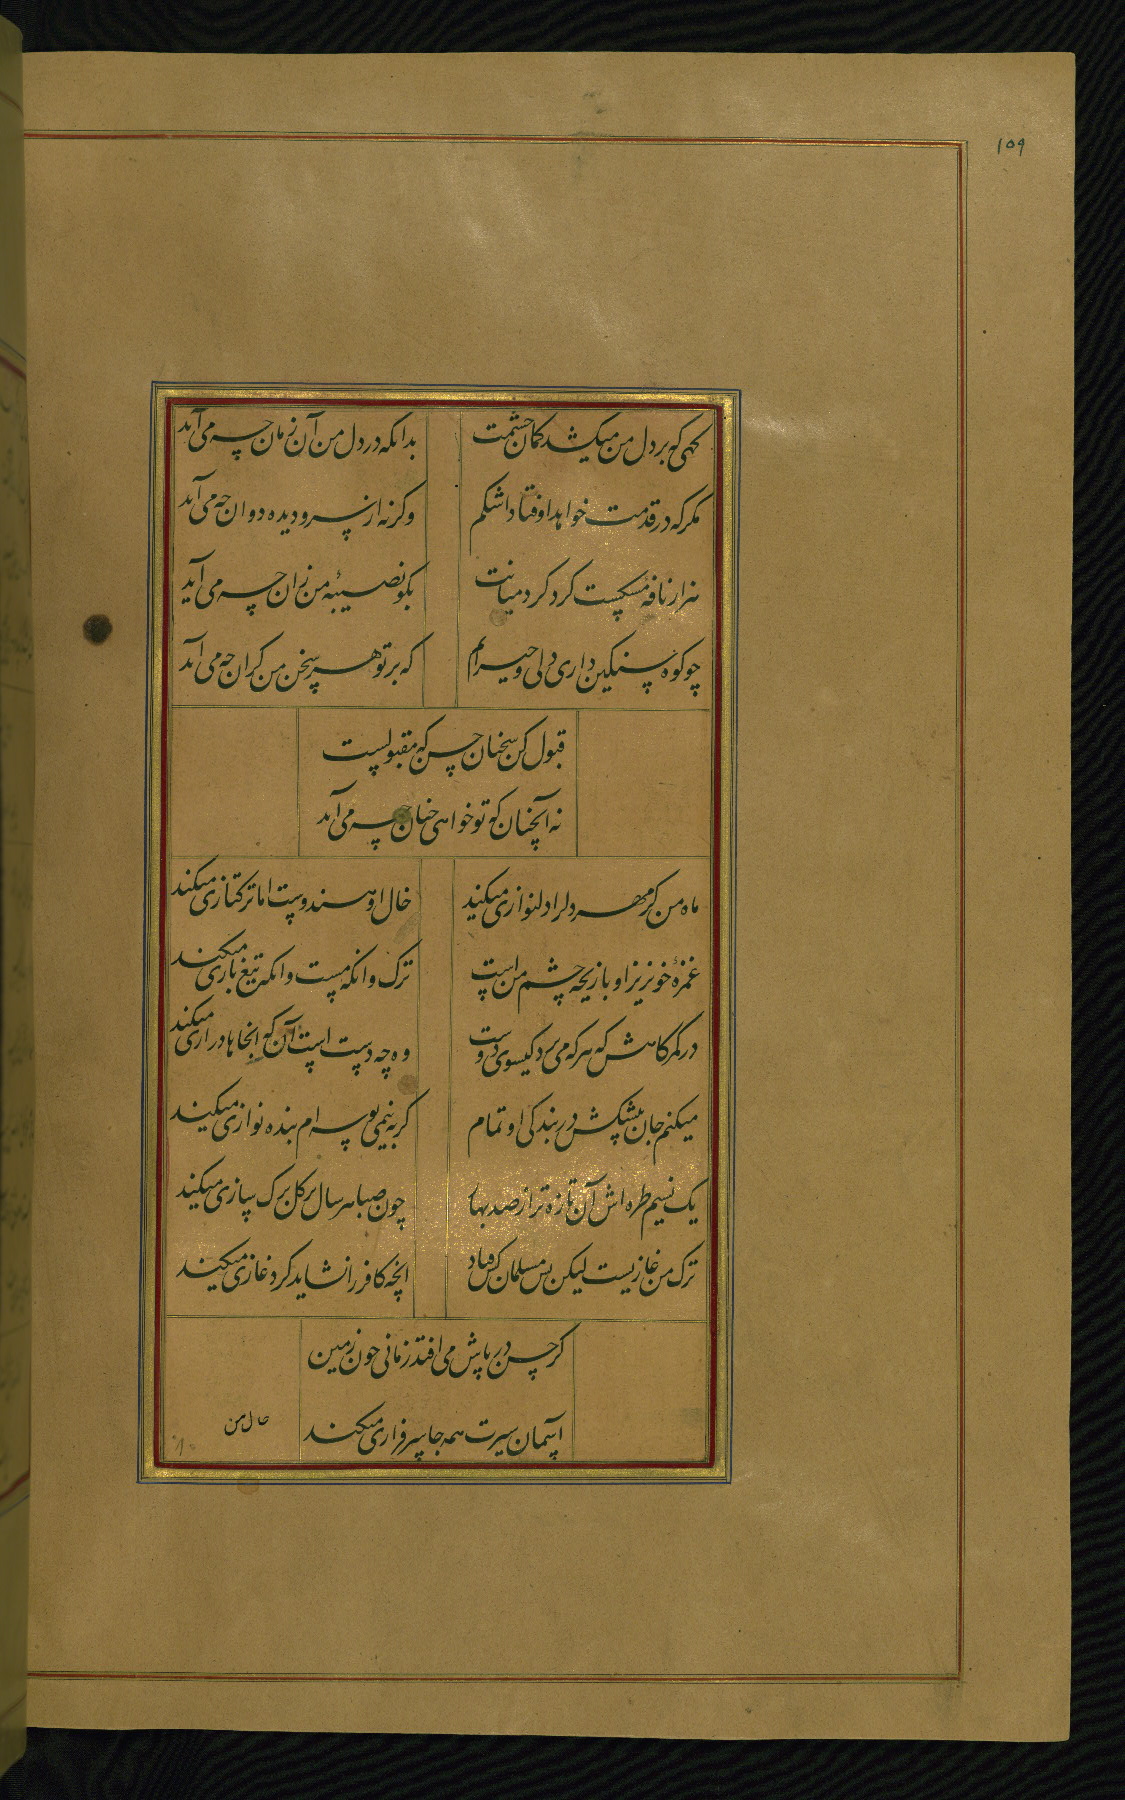 ۱۵۹
کهی که بر دل من میکشد کمان چشمت
بدانکه در دل من آن زمان چه می آید
مکر که در قدمت خواهد اوفتاد اشکم
وکرنه از سر و دیده دوان چه می آید
هزار نافه مشکست کرد کرد میانت
بکو نصیبۀ من زان چه می آید
چو کوه سنکین داری دلی و حیرانم
که بر تو هر سخن من کران چه می آید
قبول کن سخنان حسن که مقبولست
نه آنچنان که تو خواهی چنان چه می آید
ماه من کر مهر دلرا دلنوازی میکند
خال او هندوست اما ترکتازی میکند
غمزۀ خونریز او بازیچه چشم من است
ترک وانکه مست وانکه تیغ بازی میکند
در کمرکاهش که هرکه می رسد کیسوی دوست
وه چه دست است آن که انجاها درازی میکند
میکنم جان پیشکش در بندکی او تمام
کر به نیمی بوسه ام بنده نوازی میکند
یک نسیم طره اش آن تازه تر از صد بهار
چون صبا هر سال بر کل برک سازی میکند
ترک من غازیست لیکن بس مسلمان کش فتاد
انچه کافر را نشاید کرد غازی میکند
کر حسن در پاش می افتد زمانی چون زمین
آسمان سیرت همه جا سرفرازی میکند
حال من